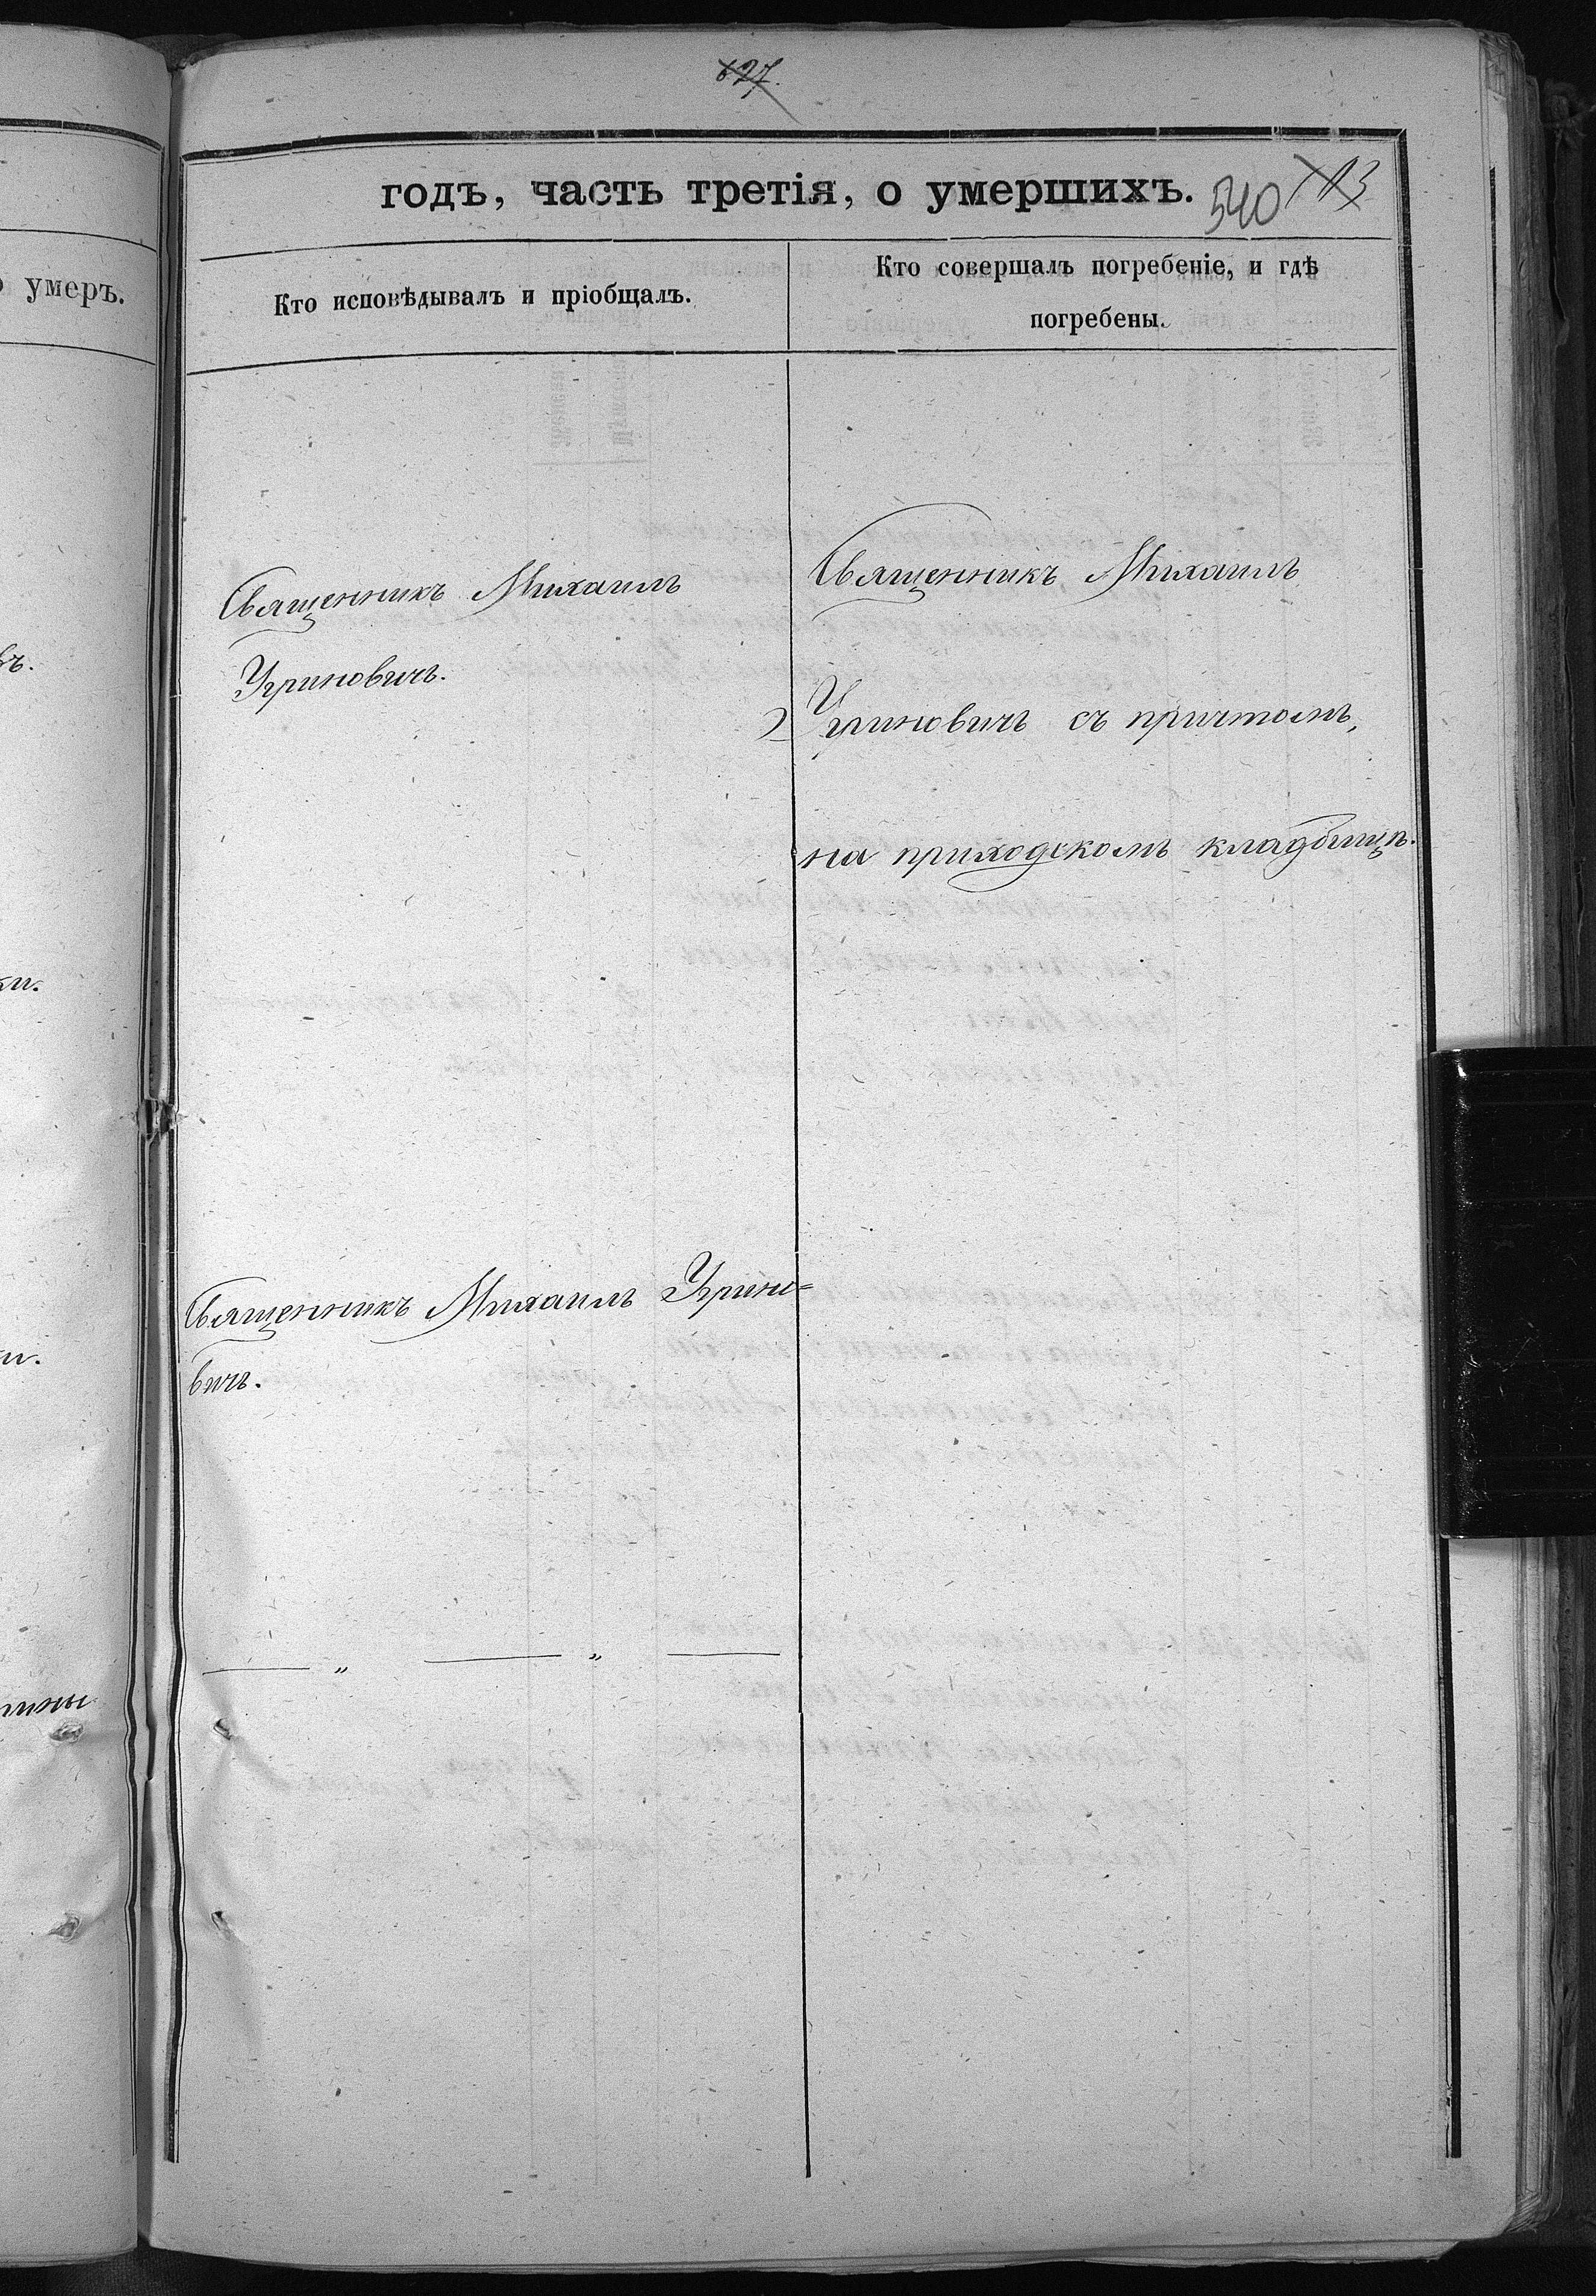 627.
годъ, часть третія, о умершихъ.
540
113
умеръ.
Кто исповѣдывалъ и пріобщалъ.
Кто совершалъ погребеніе, и гдѣ
погребены.
Священникъ Михаилъ
Угриновичъ.
Священникъ Михаилъ
Угриновичъ съ причтомъ,
на приходскомъ кладбищѣ.
Священникъ Михаилъ Угрино=
вичъ.
— „ — „ —